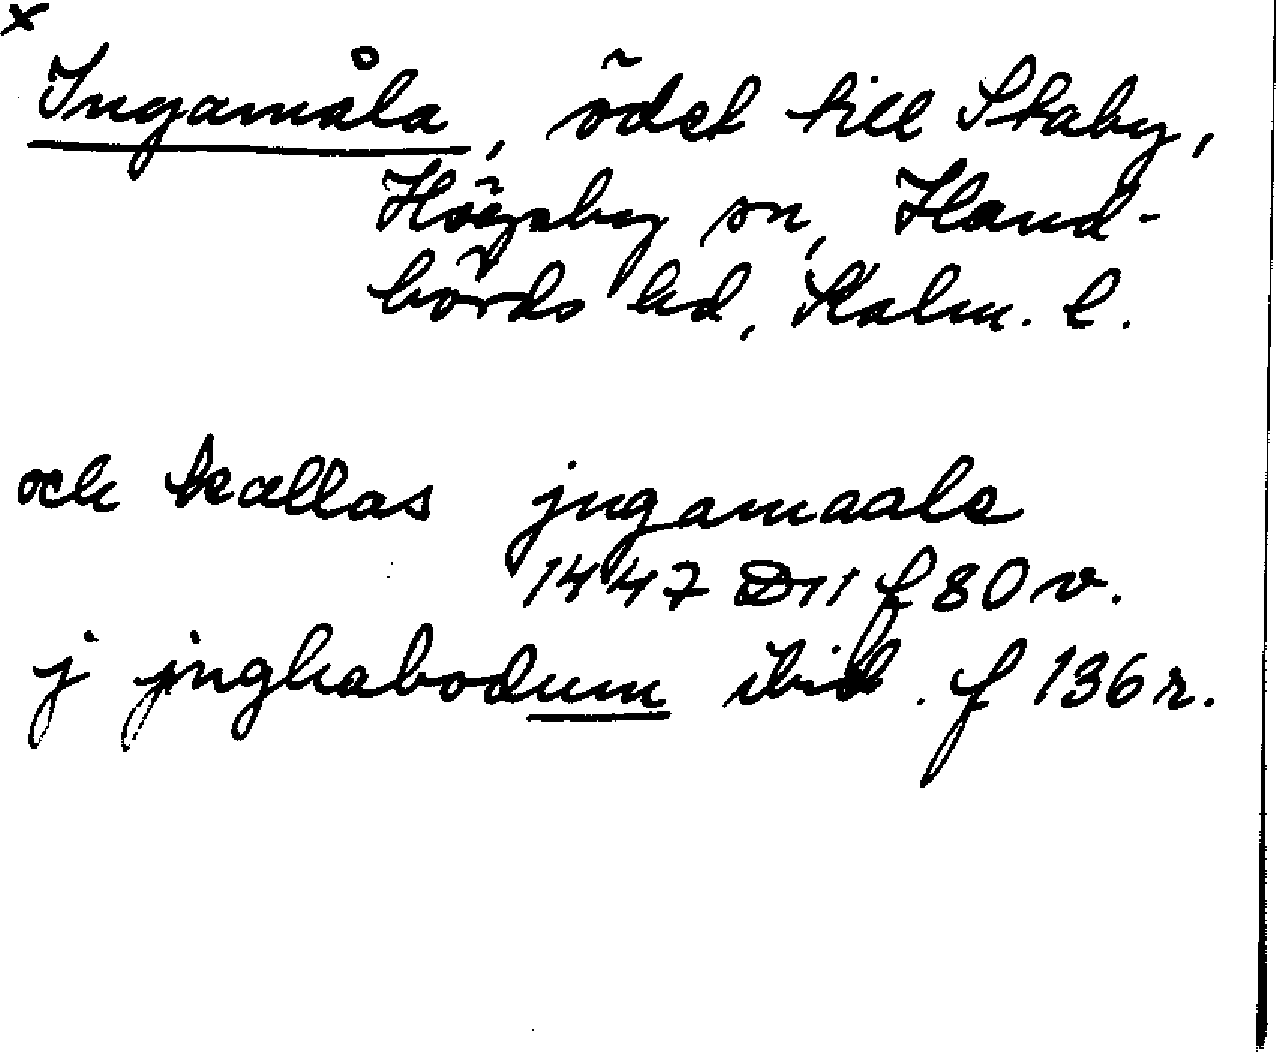 x
Ingamåla, ödet till Staby,
Högsby sn, Hand-
börds hd, Kalm. l.
och kallas jngamaala
1447 D11 f 80 v.
j jnghabodum ibid. f 136 r.